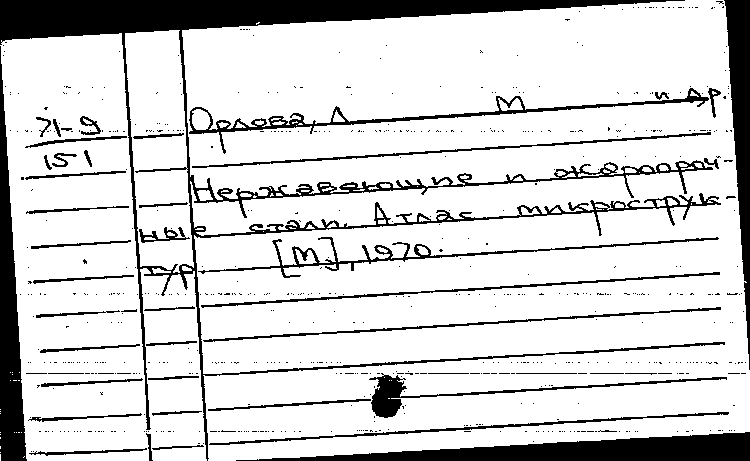 71-9
151
Орлова, Л М и др.
Нержавеющие и жаропроч-
ные стали. Атлас микрострук-
тур. [М.], 1970.